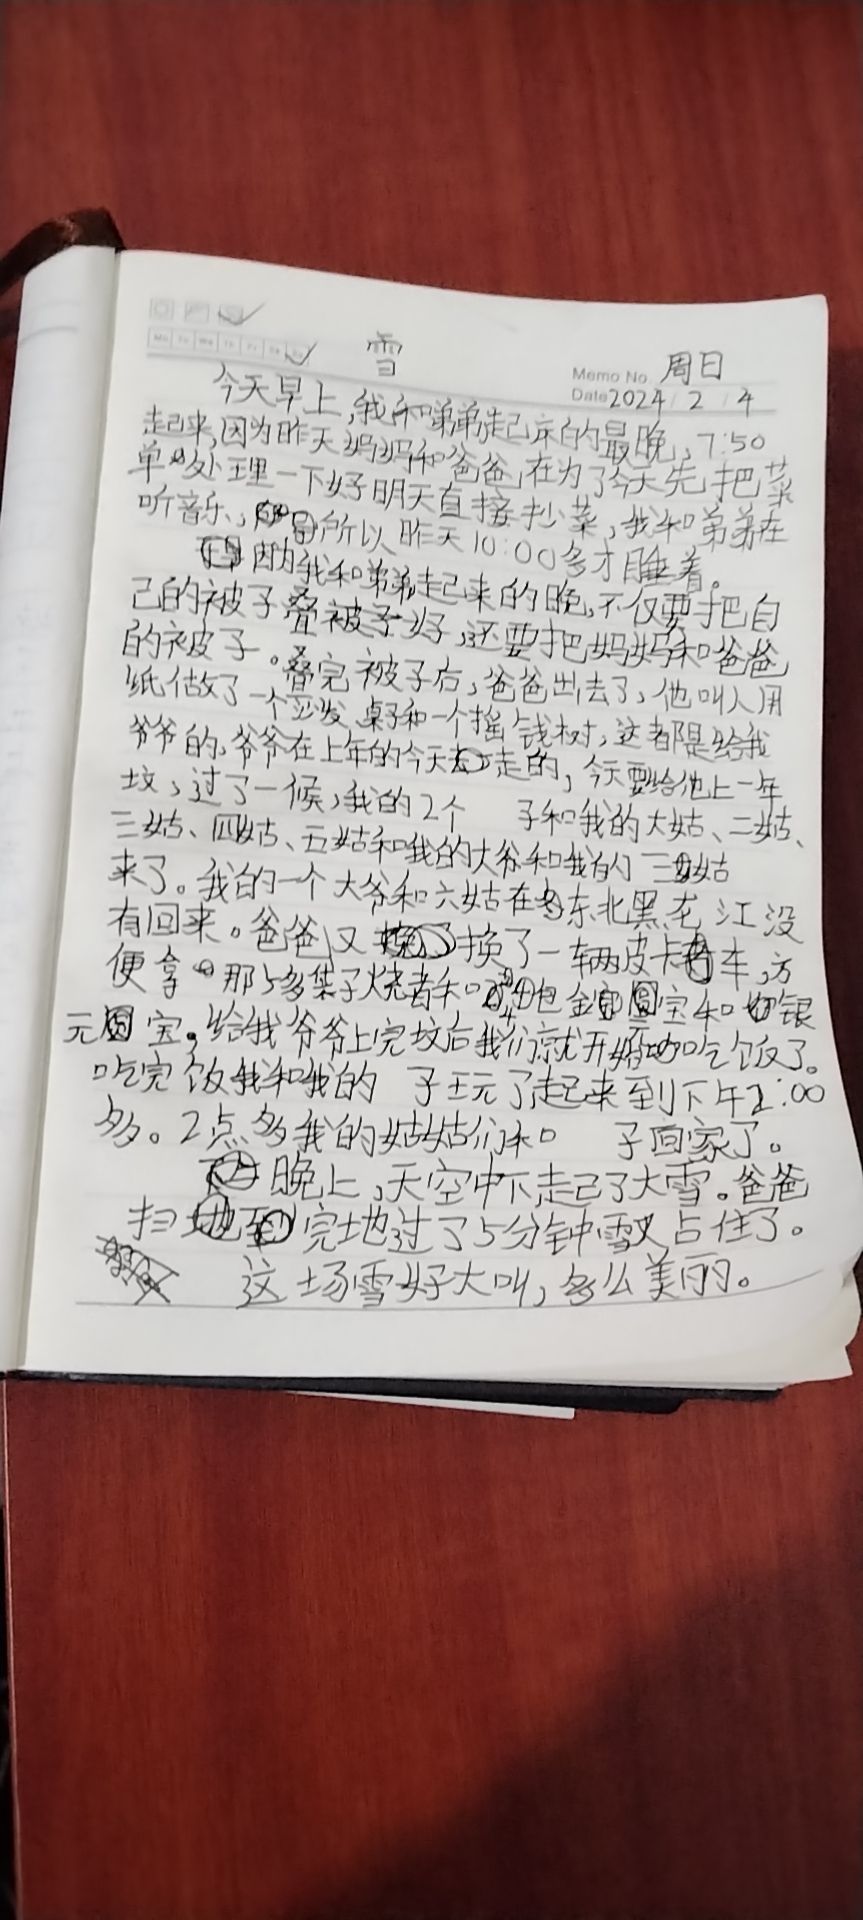 雪
Memo No. 周日
Date 2024 / 2 / 4
今天早上,我和弟弟起床的最晚,7:50
起来,因为昨天妈妈和爸爸,在为了今天先把菜
单处理一下好明天直接抄菜,我和弟弟在
听音乐,所以昨天10:00多才睡着。
因为我和弟弟起来的晚,不仅要把自
己的被子叠被子好,还要把妈妈和爸爸
的被子。叠完被子后,爸爸出去了,他叫人用
纸做了一个沙发、桌子和一个摇钱树,这都是给我
爷爷的,爷爷在上年的今天走的,今天要给他上一年
坟,过了一候,我的2个 子和我的大姑、二姑、
三姑、四姑、五姑和我的大爷和我的 三姑
来了。我的一个大爷和六姑在东北黑龙江没
有回来。爸爸又换了一辆皮卡车,方
便拿那多集子烧者和 包金圆宝和银
元宝。给我爷爷上完坟后我们就开始吃饭了。
吃完饭我和我的 子玩了起来到下午2:00
多。2点多我的姑姑们和 子回家了。
晚上,天空中下起了大雪。爸爸
扫完地过了5分钟雪又占住了。
这场雪好大叫,多么美丽。